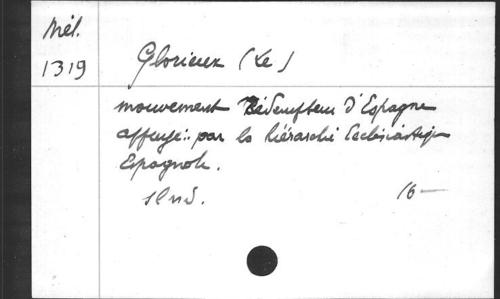 Mél.
1319
Glorieux (Le)
mouvement Rédempteur d'Espagne
appuyé: par la hiérarchie Ecclésiastiq
Espagnole.
slnd. 16—